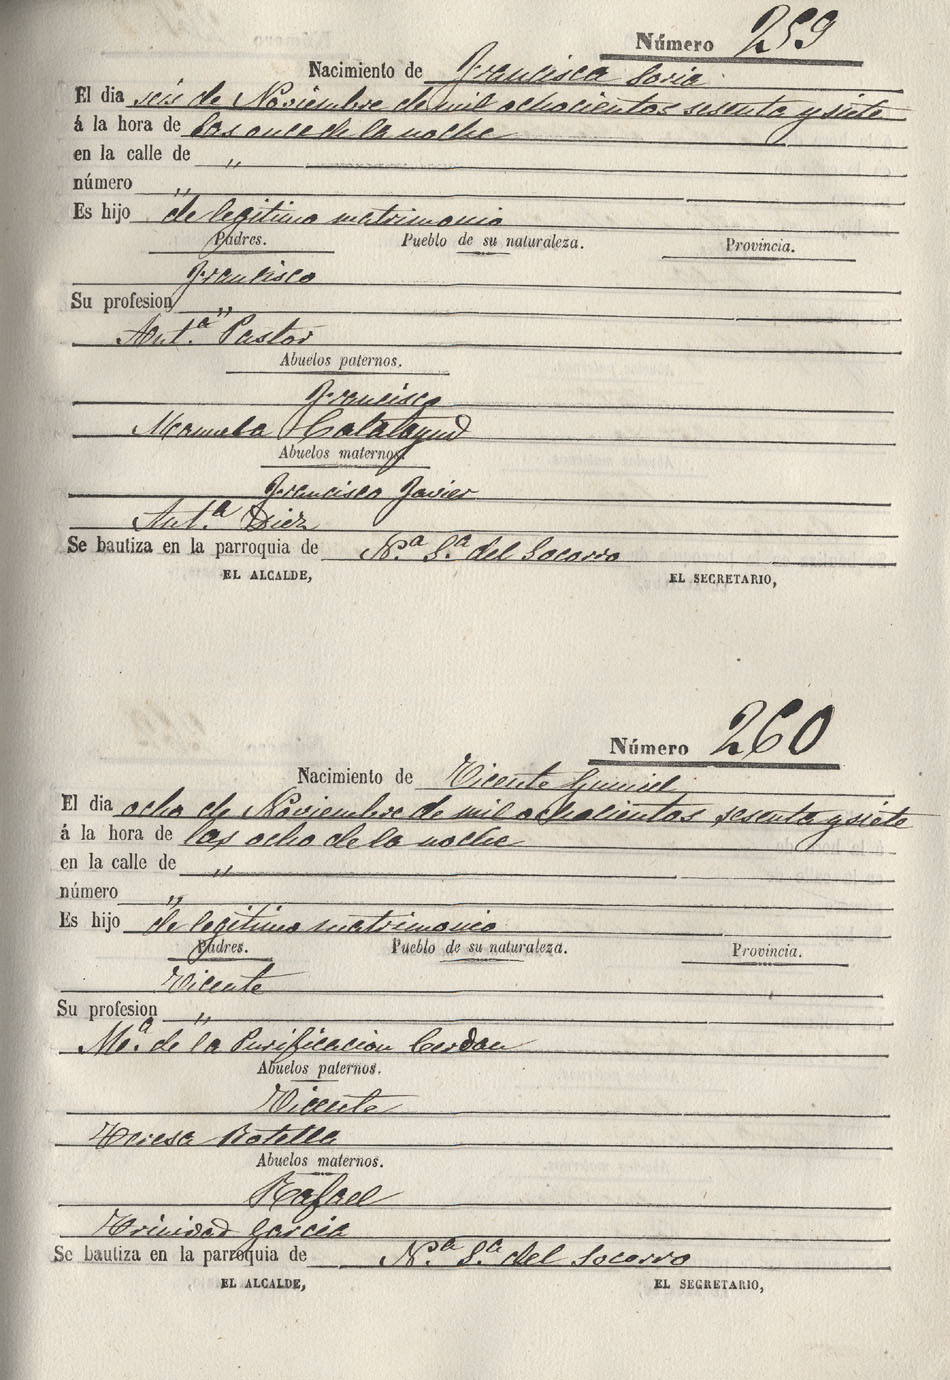 Número 259
Nacimiento de Francisca Soria
El dia seis de Noviembre de mil ochocientos sesenta y siete
á la hora de las once de la noche
en la calle de "
número "
Es hijo de legitimo matrimonio
Padres. Pueblo de su naturaleza. Provincia.
Francisco
Su profesion "
Ant.ª Pastor
Abuelos paternos.
Francisco
Manuela Calatayud
Abuelos maternos.
Francisco Javier
Ant.ª Diez
Se bautiza en la parroquia de N.ª S.ª del Socorro
EL ALCALDE, EL SECRETARIO,
Número 260
Nacimiento de Vicente Gumiel
El dia ocho de Noviembre de mil ochocientos sesenta y siete
á la hora de las ocho de la noche
en la calle de "
número "
Es hijo de legitimo matrimonio
Padres. Pueblo de su naturaleza. Provincia.
Vicente
Su profesion "
M.ª de la Purificacion Cerdan
Abuelos paternos.
Vicente
Teresa Botella
Abuelos maternos.
Rafael
Trinidad Garcia
Se bautiza en la parroquia de N.ª S.ª del Socorro
EL ALCALDE, EL SEGRETARIO,